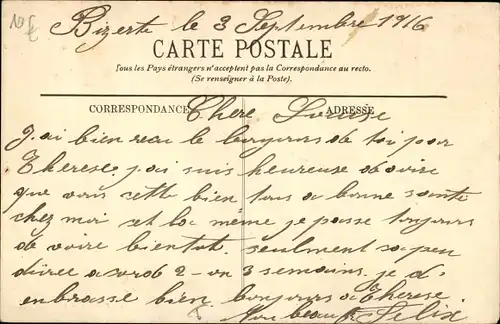 Bizerte le 3 Septembre 1916
CARTE POSTALE
Tous les Pays étrangers n'acceptent pas la Correspondance au recto.
(Se renseigner à la Poste).
CORRESPONDANCE ADRESSE
Chere Louise
J'ai bien recu le bonjours de toi par
Therese j'ai suis heureuse de voire
que vous cette bien tous a bonne sante
chez moi cet la même je pense toujours
de voire bientot seulment sa peu
durée 2 - ou 3 semains je
enbrasse bien bonjours a Therese
Felix